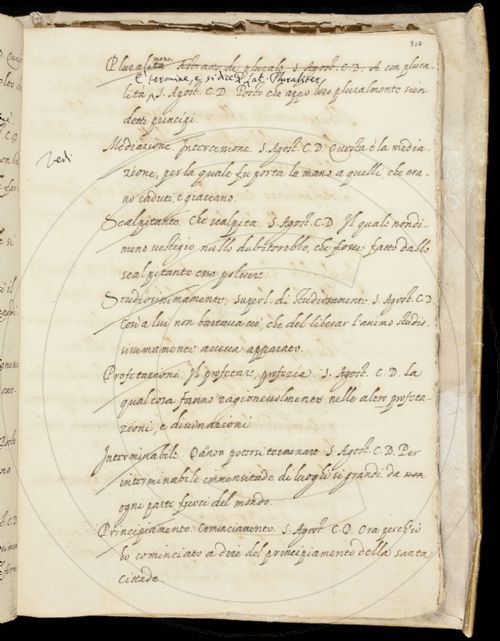 310
Pluralità Astratto di plurale. S. Agost. C.D. A con plura-
mente
È termine, e si dice Lat. Pluraliter
lità, S. Agost. C.D. Posto che appo loro pluralmente sien
detti principi.
Mediazione. Intercessione. S. Agost. C.D. Questa è la media-
vedi
zione, per la quale fu porta la mano a quelli, che era-
no caduti, e giaceano.
Scalpitante. Che scalpita. S. Agost. C.D. Il quale nondi-
meno vestigio nullo dubiterebbe, che fosse fatto dallo
scalpitante era polvere.
Studiosissimamente. Superl. di Studiosamente. S. Agost. C.D.
Così a lui non bastava ciò, che del liberar l'animo studio-
sissimamente aveva apparato.
Profetazione. Il profetare, profezia. S. Agost. C.D. la
qual cosa fanno ragionevolmente nelle altre profeta-
zioni, e divinazioni
Interminabile. Da non potersi terminare. S. Agost. C.D. Per
interminabile immensitade di luoghi sì grandi da non
ogni parte fuori del mondo.
Principiamento. Cominciamento. S. Agost. C.D. Ora perch'io
ho cominciato a dire del principiamento della santa
Cittade.